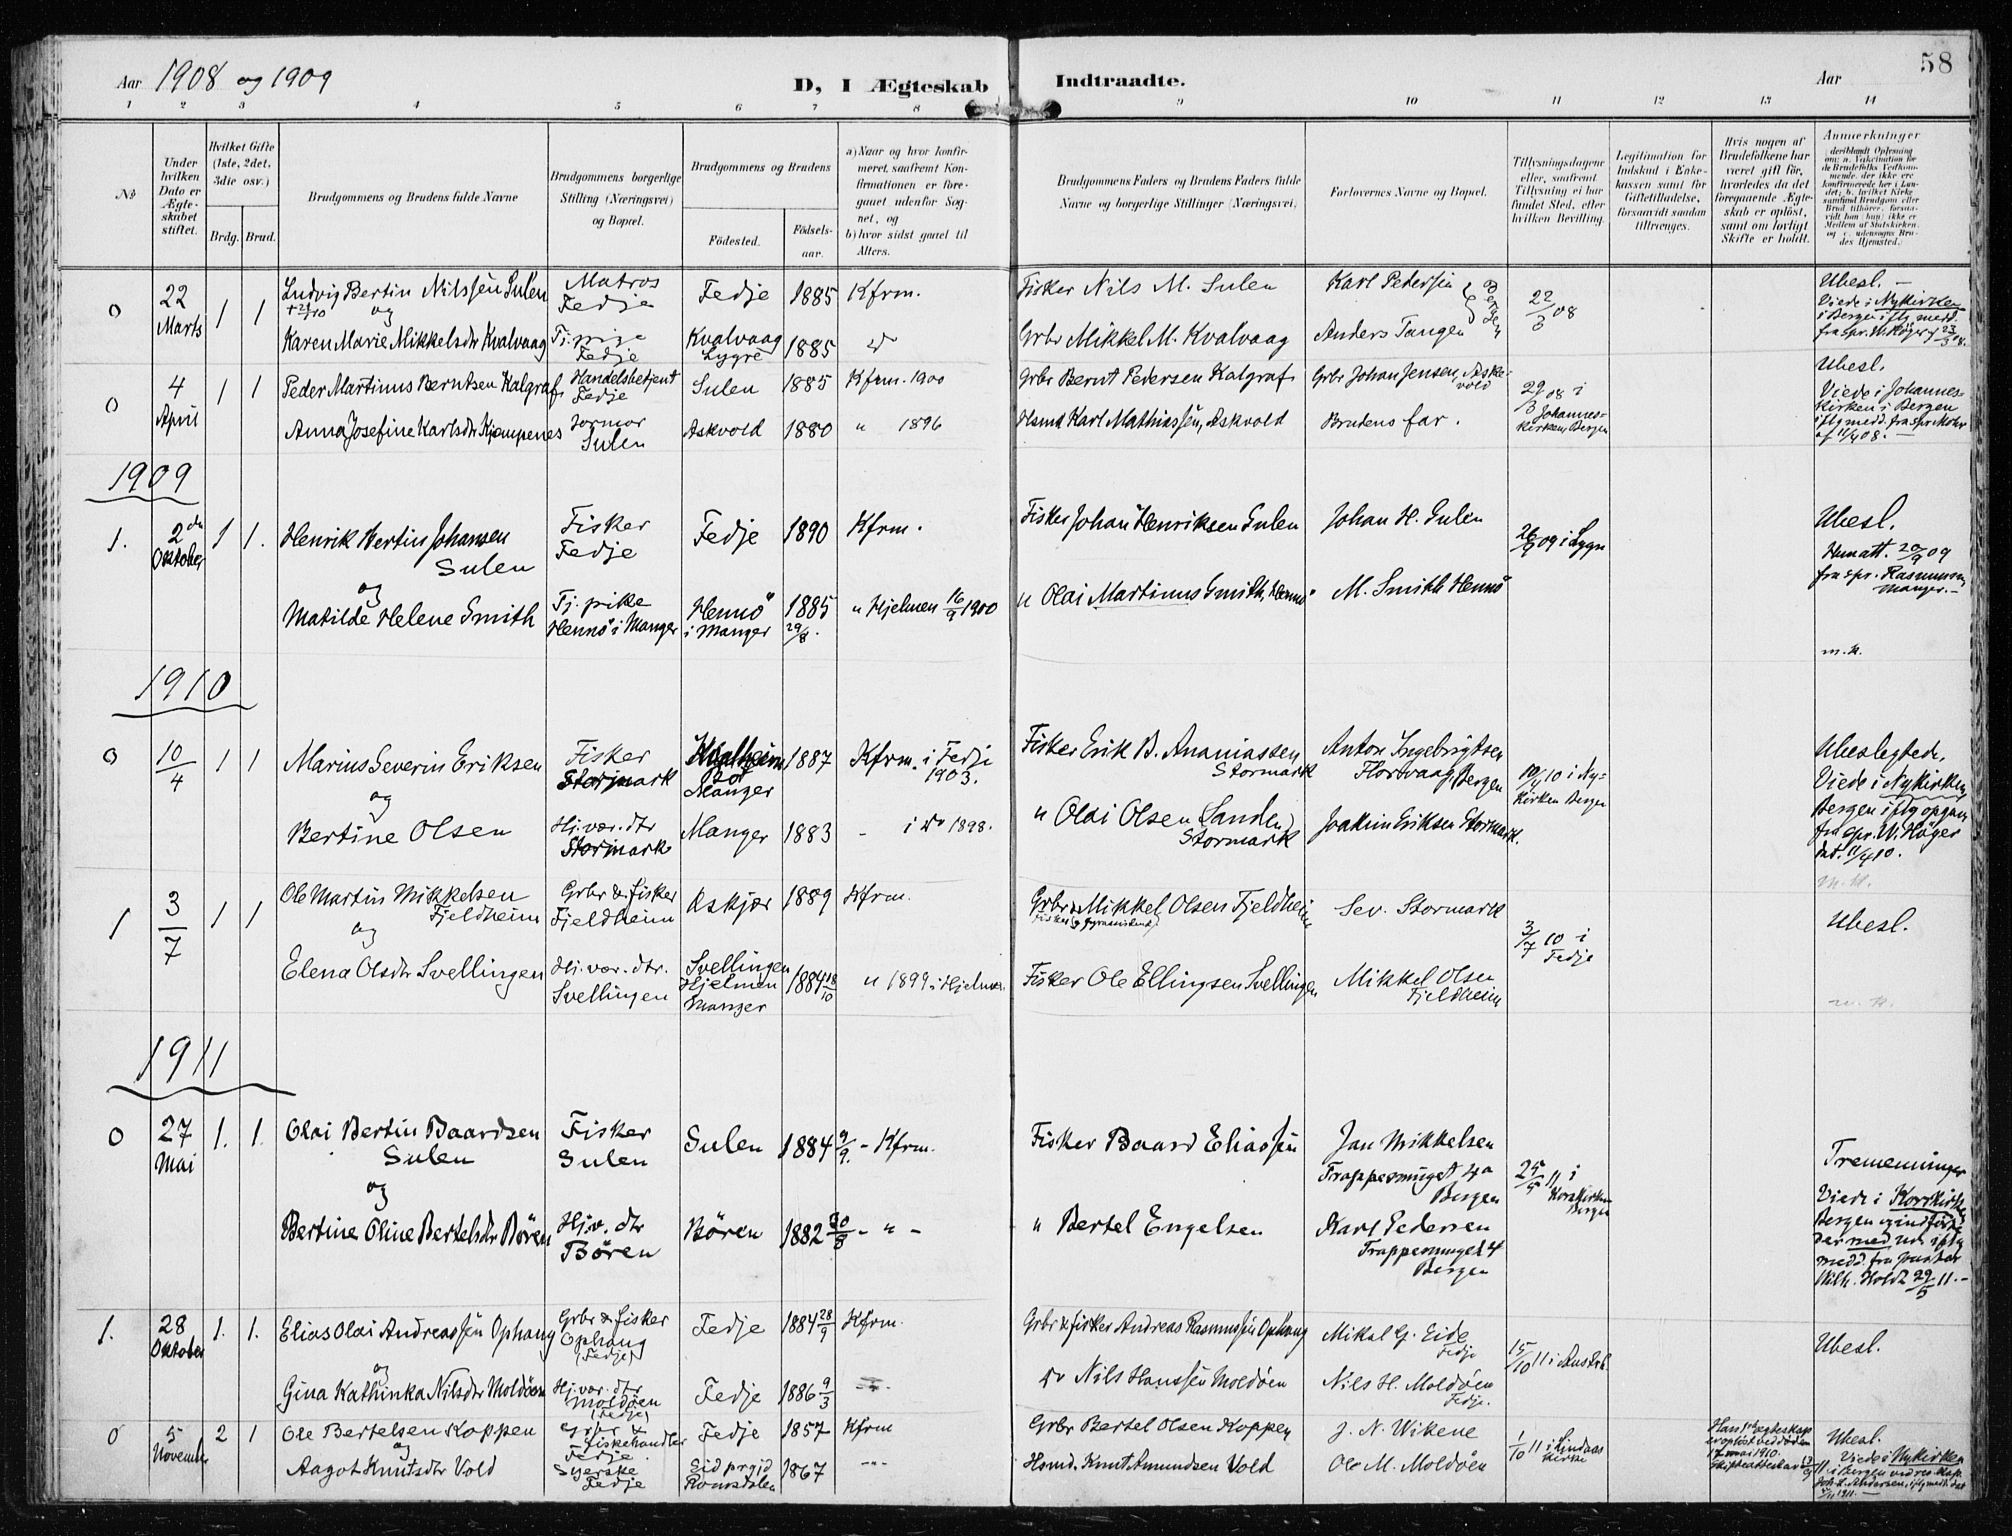 58
Aar 1908 og 1909
D, I Ægteskab Indtraadte.
Aar
1 2 3 4 5 6 7 8 9 10 11 12 13 14
No
Under hvilken Dato er Ægteskabet stiftet.
Hvilket Gifte (1ste, 2det, 3die osv.)
Brdg. Brud.
Brudgommens og Brudens fulde Navne
Brudgommens borgerlige Stilling (Næringsvei) og Bopæl.
Brudgommens og Brudens
Födested.
Födselsaar.
a) Naar og hvor konfirmeret, saafremt Konfirmationen er foregaaet udenfor Sognet, og
b) hvor sidst gaaet til Alters.
Brudgommens Faders og Brudens Faders fulde Navne og borgerlige Stillinger (Næringsvei)
Forlovernes Navne og Bopæl.
Tillysningsdagene eller, saafremt Tillysning ei har fundet Sted, efter hvilken Bevilling.
Legitimation for Indskud i Enkekassen samt for Giftetilladelse, forsaavidt saadan tiltrænges.
Hvis nogen af Brudefolkene har været gift, hvorledes da det foregaaende Ægteskab er oplöst, samt om lovligt Skifte er holdt.
Anmerkninger
0 22 Marts 1 1 Ludvig Bertin Nilssen Sulen Matros Fedje Fedje 1885 Kfrm. Fisker Nils M. Sulen Karl Pedersen Bergen 22/3 08 Ubesl. –
og
Karen Marie Mikkelsdtr Kvalvaag Fedje Kvalvaag Lygre 1885 Grbr Mikkel M. Kvalvaag Anders Tangen
Viede i Nykirken i Bergen
0 4 April 1 1 Peder Martinus Berntsen Kalgraf Handelsbetjent Fedje Sulen 1885 Kfrm. 1900 Grbr Bernt Pedersen Kalgraf Grbr Johan Jensen, Askevold 29/3 08 i Johanneskirken, Bergen Ubesl.
Anna Josefine Karlsdtr Kjempenes Jormor Sulen Askvold 1880 " 1896 Hsmd Karl Mathiassen, Askvold Brudens far.
Viede i Johanneskirken i Bergen
1909
1. 2den Oktober 1 1. Henrik Bertin Johansen Sulen Fisker Fedje Fedje 1890 Kfrm. Fisker Johan Henriksen Sulen Johan H. Sulen 26/9 09 i Lygre Ubesl.
og
Matilde Helene Smith Tj. pike Hennö i Manger Hennö i Manger 1885 29/8. " Hjelmen 16/9 1900 " Olai Martinus Smith, Hennö M. Smith Hennö
20/9 09 fra spr. Rasmussen Manger. –
m. K.
1910
0 10/4 1 1 Marius Severin Eriksen Fisker Stormark Manger 1887 Kfrm. i Fedje 1903. Fisker Erik B. Ananiassen Stormark Anton Ingebrigtsen Florvaag, Bergen 10/4 10 i Nykirken Bergen Ubeslegtede.
og
Bertine Olsen Hj.vær. dtr Stormark Manger 1883 – i do 1898. " Olai Olsen Sanden, Stormark Joakim Eriksen Stormark.
Viede i Nykirken, Bergen
m. K.
1 3/7 1 1 Ole Martin Mikkelsen Fjeldheim Grbr & fisker Fjeldheim Askjær 1889 Kfrm. Grbr Mikkel Olsen Fjeldheim Sev. Stormark 3/7 10 i Fedje Ubesl.
og
Elena Olsdtr Svellingen Hj. vær. dtr. Svellingen Svellingen Hjelmen Manger 1884 18/10 " 1899 i Hjelmen Fisker Ole Ellingsen Svellingen Mikkel Olsen Fjeldheim
m. K.
1911
0 27 Mai 1. 1. Olai Bertin Baardsen Sulen Fisker Sulen Sulen 1884 9/9. – Kfrm. Fisker Baard Eliassen Jan Mikkelsen Trappesmuget 4a Bergen 25/5 11 i Korskirken Bergen Tremenninger
og
Bertine Oline Bertelsdtr Bören Hj.v. dtr Bören Bören 1882 – " – " Bertel Engelsen Karl Pedersen Trappesmuget 4 Bergen
Viede i Korskirken Bergen
1. 28 Oktober 1. 1. Elias Olai Andreassen Ophaug Grbr & fisker Ophaug (Fedje) Fedje 1884 28/9 Kfrm. Grbr & fisker Andreas Rasmussen Ophaug Mikal G. Eide Fedje 15/10 11 i Austrh. Ubesl.
og
Gina Kathinka Nilsdtr Moldöen Hj. vær. dtr Moldöen (Fedje) Fedje 1886 9/3 –"– do Nils Hanssen Moldöen Nils H. Moldöen Fedje.
0 5 November 2 1 Ole Bertelsen Koppen Grbr & fiskehandler Fedje Fedje 1857 Kfrm Grbr Bertel Olsen Koppen J. N. Wikene 1/10 11 i Lindaas kirke Hans 1ste egteskap er oplöst ved döden 17 mai 1910. Ubesl.
og
Aagot Knutsdtr Vold Syerske Fedje Eid prgjd Romsdalen 1867 –"– Hsmd. Knut Amundsen Vold Ole M. Moldöen
Viede i Nykirken